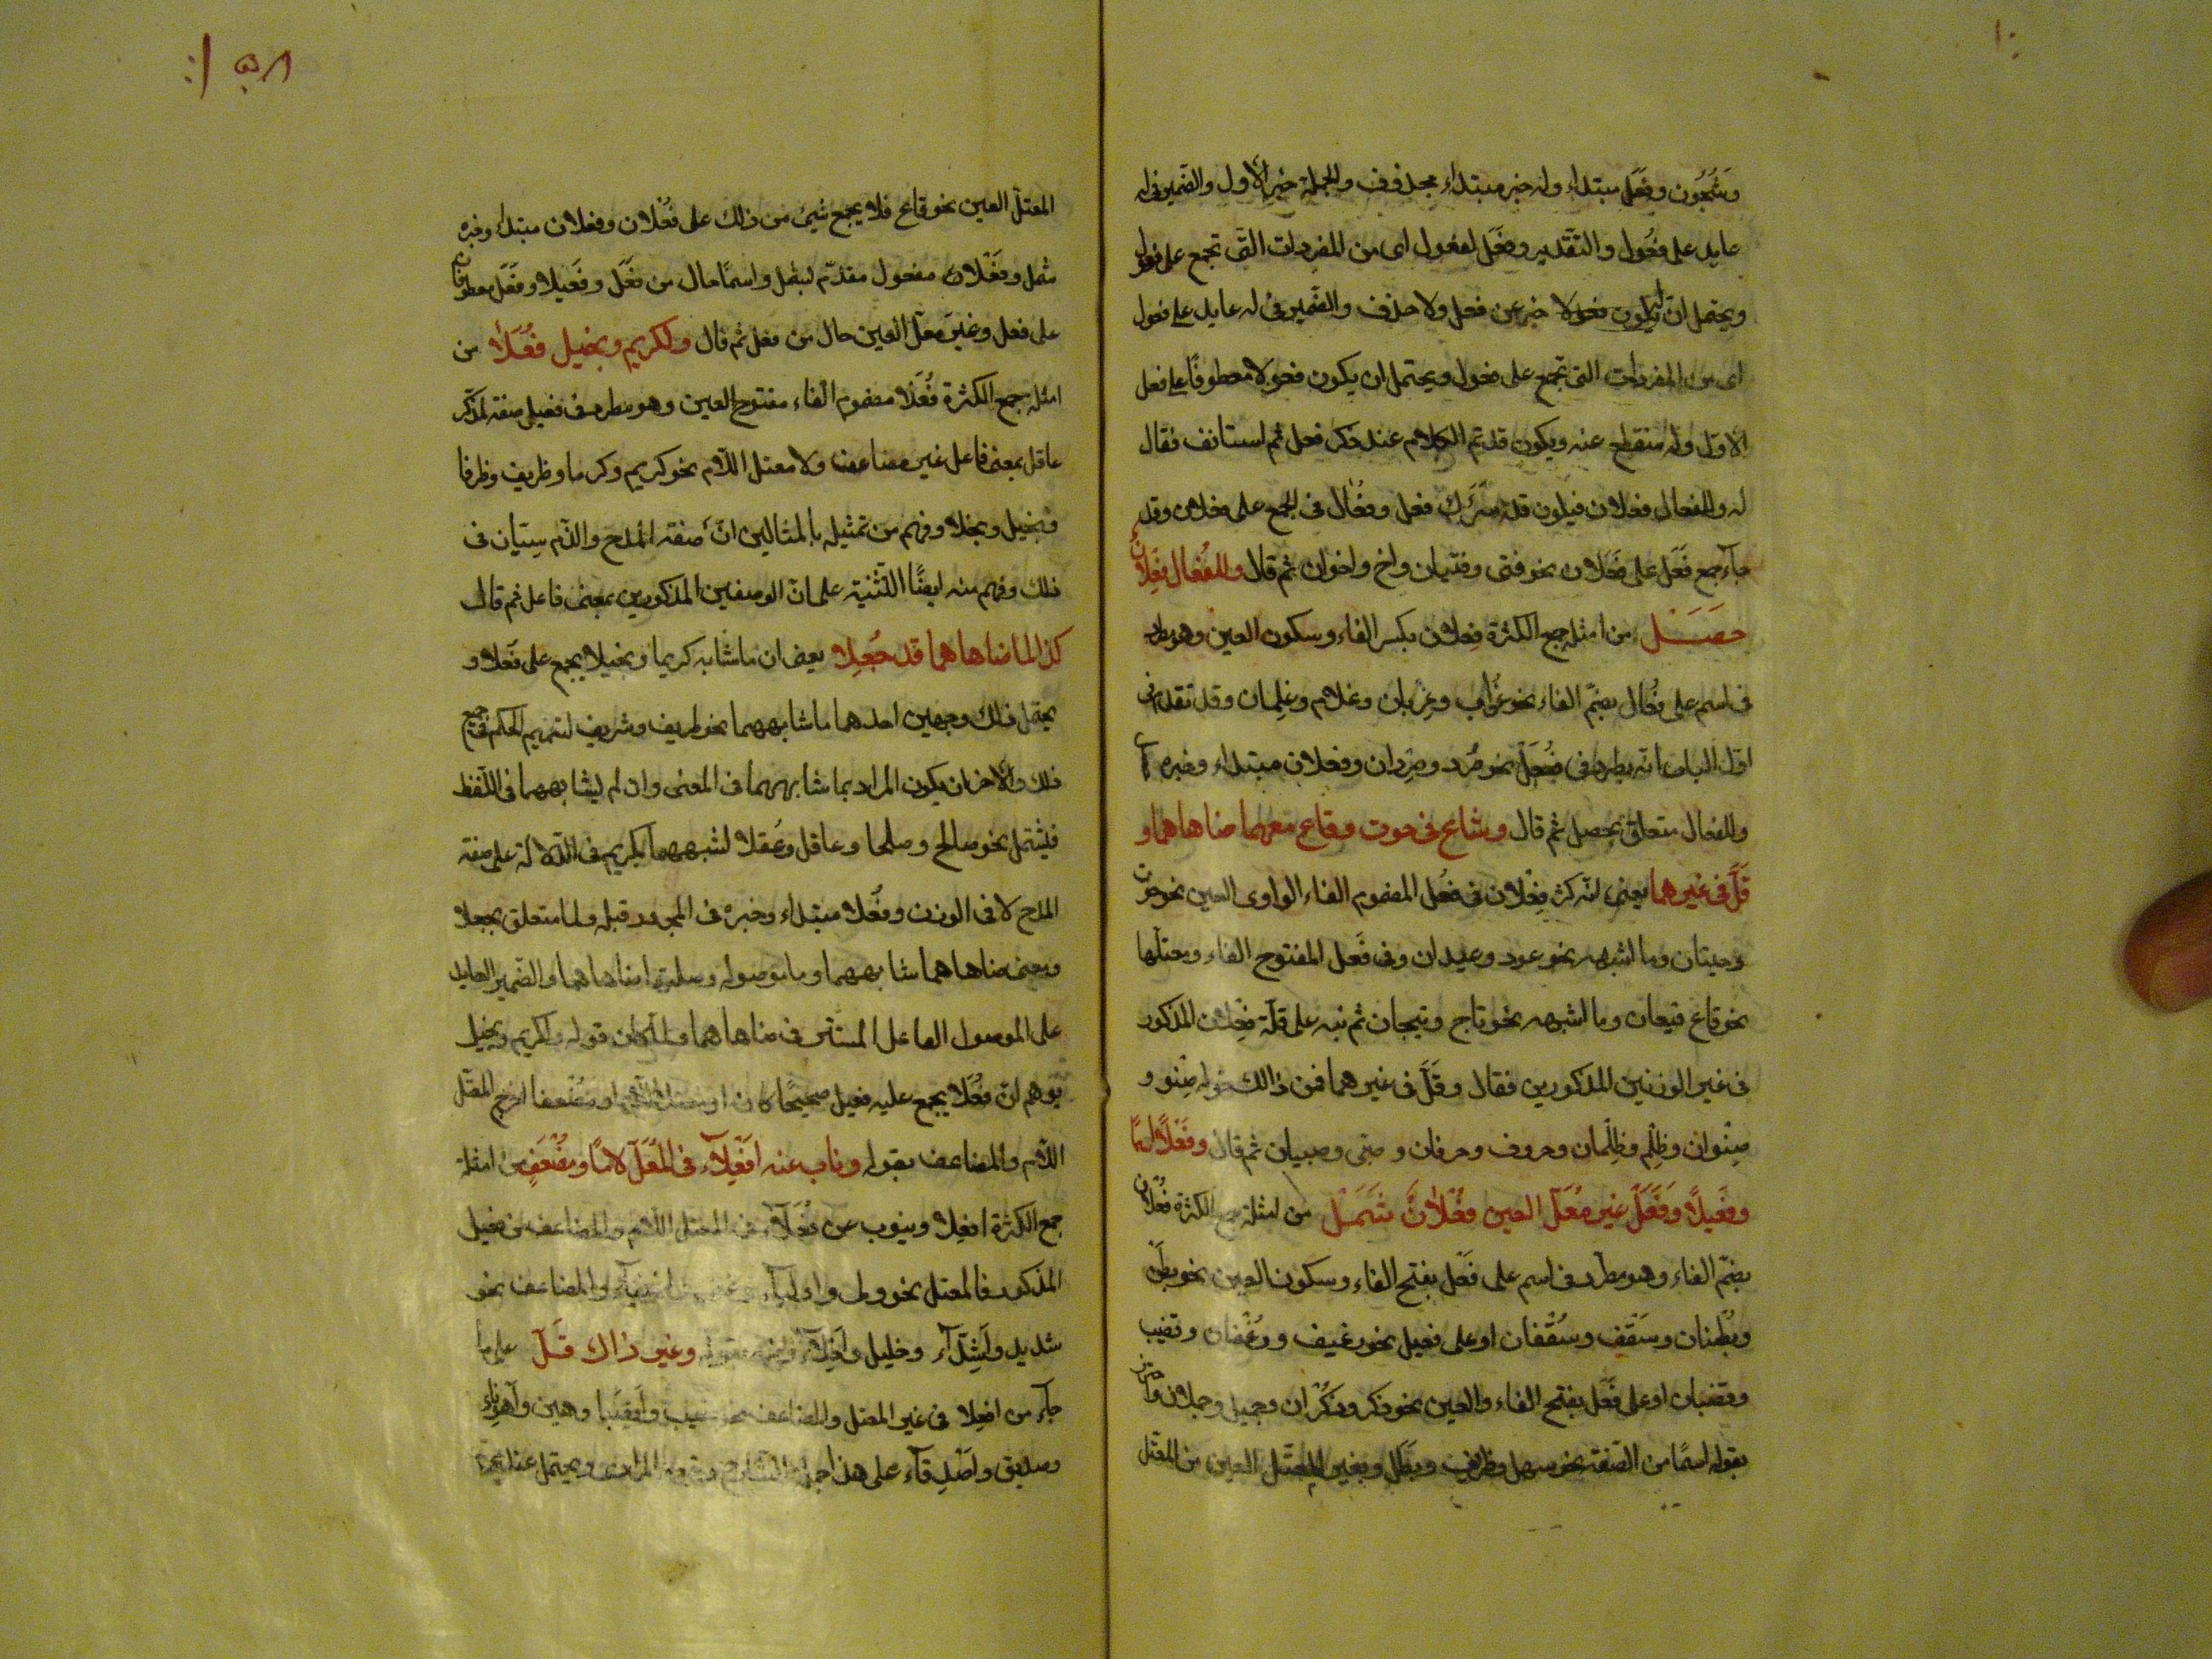 وشجون وفعل مبتداء وله خبر مبتداء محذوف والجملة خبر الاول والضمير في له
عايد على فعول والتقدير وفعل لفعول اى من المفردات التى تجمع على فعول
ويحتمل ان يكون فعولا خبر عن فعل ولا حذف والضمير فى له عايد على فعول
اى من المفردات التى تجمع على فعول ويحتمل ان يكون فعولا معطوفا على فعل
الاول وله منقطع عنه ويكون قد تم الكلام عند ذكر فعل ثم استانف فقال
له وللفعال فعلان فيكون قد شرك فعل وفعال فى الجمع على فعلان وقد
جآء جمع فَعَل على فعلان نحو فتى وفتيان واخ واخوان ثم قال وللفُعَال فِعْلانٌ
حَصَــل من امثلة جمع الكثرة فِعلان بكسر الفاء وسكون العين وهو مطرد
فى اسم على فُعال بضمّ الفاء نحو غُراب وغِربان وغلام وغِلمان وقد تقدم فى
اوّل الباب انه يطرد فى فُعَل نحو صُرد وصِردان وفعلان مبتداء وخبره
وللفعال متعلق بحصل ثم قال وشاع فى حوت وقاع معهما ضاهاهما و
قَلَّ فى غيرهما يعنى انه كثر فِعْلان فى فُعْل المضموم الفاء الواوى العين نحو حوت
وحيتان وما اشبهه نحو عود وعيدان وفى فَعل المفتوح الفاء ومعتلها
نحو قاع قيعان وما اشبهه نحو تاج وتيجان ثم نبه على قلّة فِعْلان المذكور
فى غير الوزنين المذكورين فقال وقَلَّ فى غيرهما فمن ذالك قوله صِنْو و
صِنْوان وظِلْم وظِلْمان وخروف وخرفان و صبى وصبيان ثم قال وفَعْلاً اسمًا
وفَعِيلاً وفَعَل غير مُعَلّ العين فُعْلانٌ شَمَــل من امثلة جمع الكثرة فُعْلان
بضمّ الفاء وهو مطرد فى اسم على فَعْل بفتح الفاء وسكون العين نحو بطن
وبُطْنان وسَقْف وسُقْفان او على فعيل نحو رغيف ورُغْفان وقضيب
وقضبان او على فَعَل بفتح الفاء والعين نحو ذكر وذُكْران وجمل وجملان واحترز
بقوله اسمًا من الصّفة نحو سهل وظريف وبَطَل وبغير المعتل العين من المعتل
المعتلّ العين نحو قاع فلا يجمع شئ من ذلك على فُعْلان وفعلان مبتداء وخبره
شمل وفَعْلان مفعول مقدّم لشمل واسمًا حال من فَعْل وفَعِيلا وفَعَل معطوفان
على فعل وغيرَ معلّ العين حال من فعل ثم قال ولكريم وبخيل فُعَـلا من
امثلة جمع الكثرة فُعَلا مضموم الفاء مفتوح العين وهو مطرد فى فعيل صفة لمذكّر
عاقل بمعنى فاعل غير مضاعف ولا معتل اللّام نحو كريم وكرما وظريف وظرفا
وبخيل وبخلا وفهم من تمثيله بالمثالين انّ صفة المدح والذّم سيّان فى
ذلك وفهم منه ايضًا التّنبيه على انّ الوصفين المذكورين بمعنى فاعل ثم قال
كذا لما ضاهاهما قد جُعِلا يعنى ان ما شابه كريما وبخيلا يجمع على فُعلا و
يحتمل ذلك وجهين احدهما ما شابههما نحو ظريف وشريف لتعميم الحكم فى جميع
ذلك والاخر ان يكون المراد بما شابههما فى المعنى وان لم يشابههما فى اللّفظ
فليشتمل نحو صالح وصلحا وعاقل وعُقلا لشبههما بكريم فى الدّلالة على صفة
المدح لا فى الوزن وفُعلا مبتداء وخبره فى المجرور قبله ولما متعلق بجعلا
ومعنى ضاهاهما شابههما وما موصوله وصلتها ضاهاهما والضّمير العايد
على الموصول الفاعل المستتر فى ضاهاهما ولما كان قوله ولكريم وبخيل
يوهم انّ فُعَلا يجمع عليه فعيل صحيحًا كان او معتل اللّام او مضعفا اخرج المعتلّ
اللّام والمضاعف بقوله وناب عنه افْعِلآء فى المُعَلّ لامًا ومُضْعَفٍ من امثلة
جمع الكثرة افعِلا وينوب عن فُعَلآء فى المعتل اللّام والمضاعف من فعيل
المذكور فالمعتل نحو ولى واوليآء والمضاعف نحو
شديد واَشِدّآء وخليل واَخِلّآء وغير ذاك قَــلّ على ما
جآء من افعِلا فى غير المعتل والمضاعف نحو نصيب واَنْصِبا وهين واَهوِناء
وصديق واَصْدِقآء على هذا حمله الشّارح المرادى ويحتمل عندى